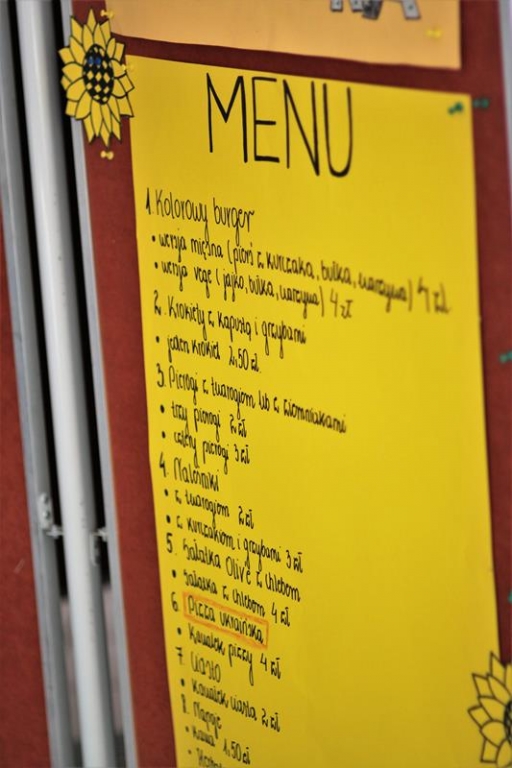 MENU
1. Kolorowy burger
• wersja mięsna (pierś z kurczaka, bułka, warzywa) 4 zł
• wersja vege (jajko, bułka, warzywa) 4 zł
2. Krokiety z kapustą i grzybami
• jeden krokiet 2,50 zł.
3. Pierogi z twarogiem lub z ziemniakami
• trzy pierogi 2 zł
• cztery pierogi 3 zł
4. Naleśniki
• z twarogiem 2 zł
• z kurczakiem i grzybami 3 zł
5. Sałatka Olivie z chlebem
• Sałatka z chlebem 4 zł
6. Pizza ukraińska
• Kawałek pizzy 4 zł
7. Ciasto
• Kawałek ciasta 2 zł
8. Napoje
• Kawa 1,50 zł